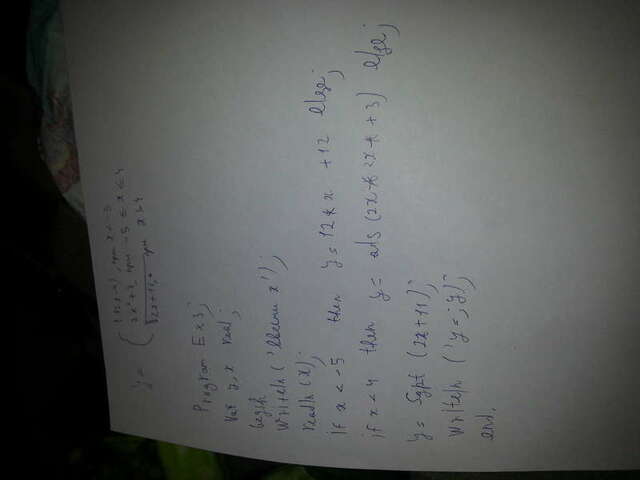 y=
2x²+3, при -5 ≤ x ≤ 4
при x>4
Program Ex3;
Var y,x real;
begin
Writeln('Введи x');
readln(x);
if x<-5 then y=12*x+12 else;
if x<4 then y= abs(2x*2x*+3) else;
y= Sqrt(2x+11);
Writeln('y=;y)";
end.